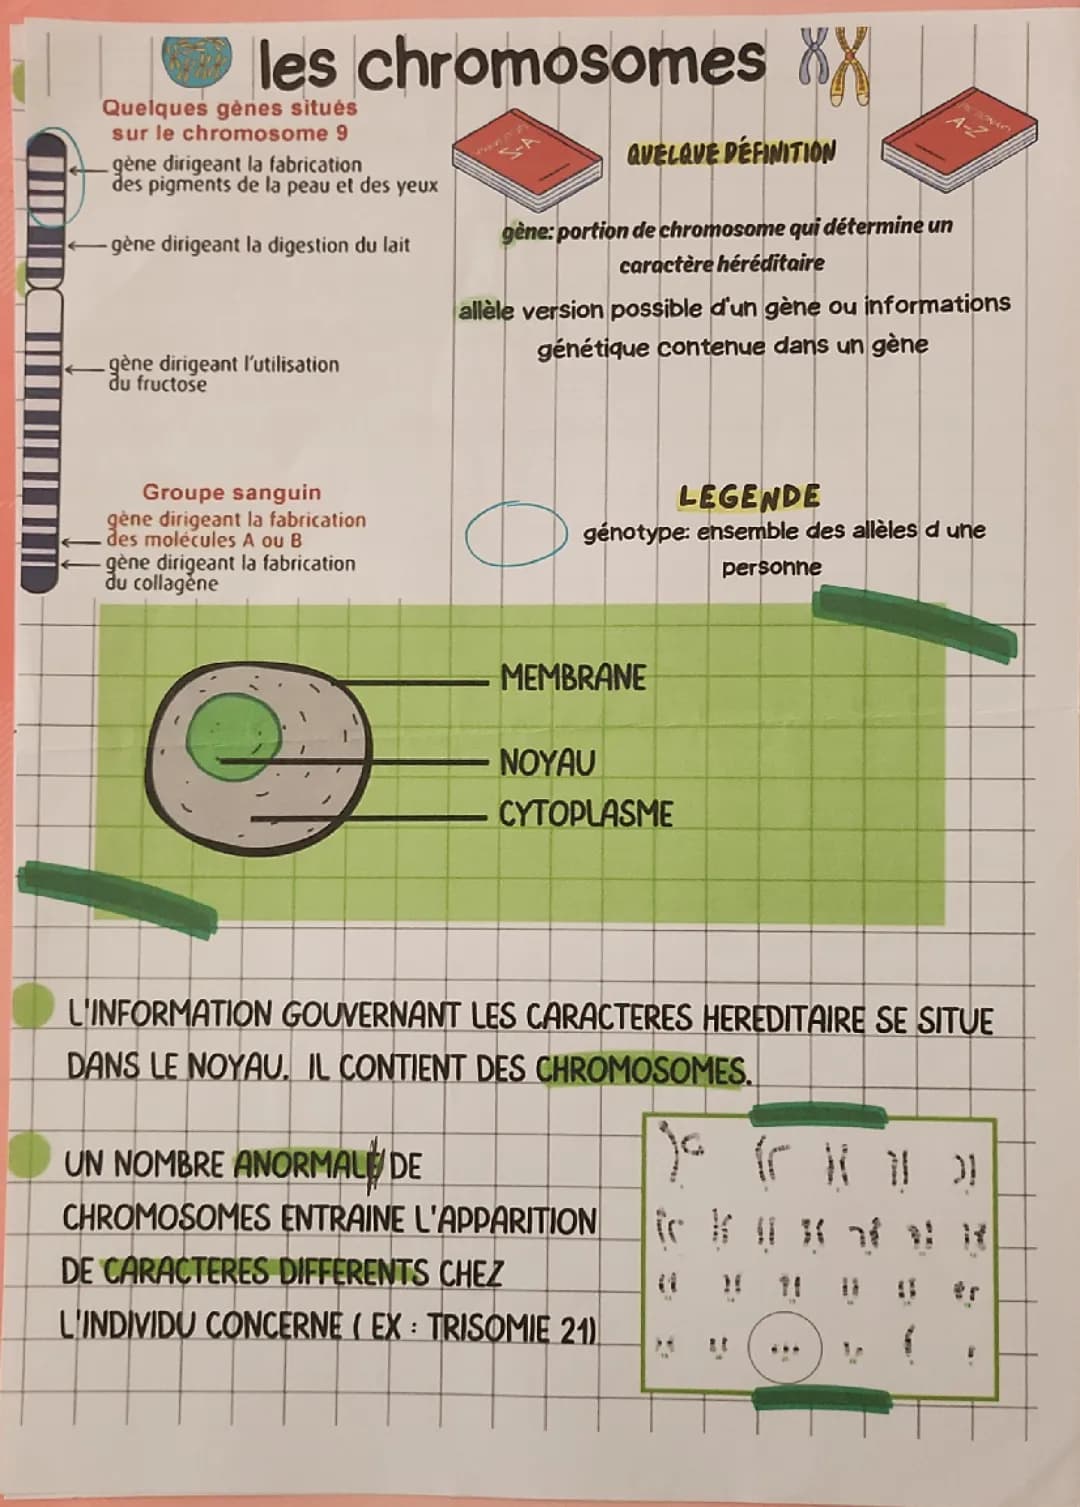 les chromosomes
Quelques gènes situés
sur le chromosome 9
gène dirigeant la fabrication
des pigments de la peau et des yeux
gène dirigeant la digestion du lait
gène dirigeant l'utilisation
du fructose
Groupe sanguin
gène dirigeant la fabrication
des molécules A ou B
gène dirigeant la fabrication
du collagène
A-Z
DICTIONARY
A-Z
QUELQUE DÉFINITION
gène: portion de chromosome qui détermine un
caractère héréditaire
allèle version possible d'un gène ou informations
génétique contenue dans un gène
LEGENDE
génotype: ensemble des allèles d une
personne
MEMBRANE
NOYAU
CYTOPLASME
L'INFORMATION GOUVERNANT LES CARACTERES HEREDITAIRE SE SITUE
DANS LE NOYAU. IL CONTIENT DES CHROMOSOMES.
UN NOMBRE ANORMALE DE
CHROMOSOMES ENTRAINE L'APPARITION
DE CARACTERES DIFFERENTS CHEZ
L'INDIVIDU CONCERNE ( EX : TRISOMIE 21)